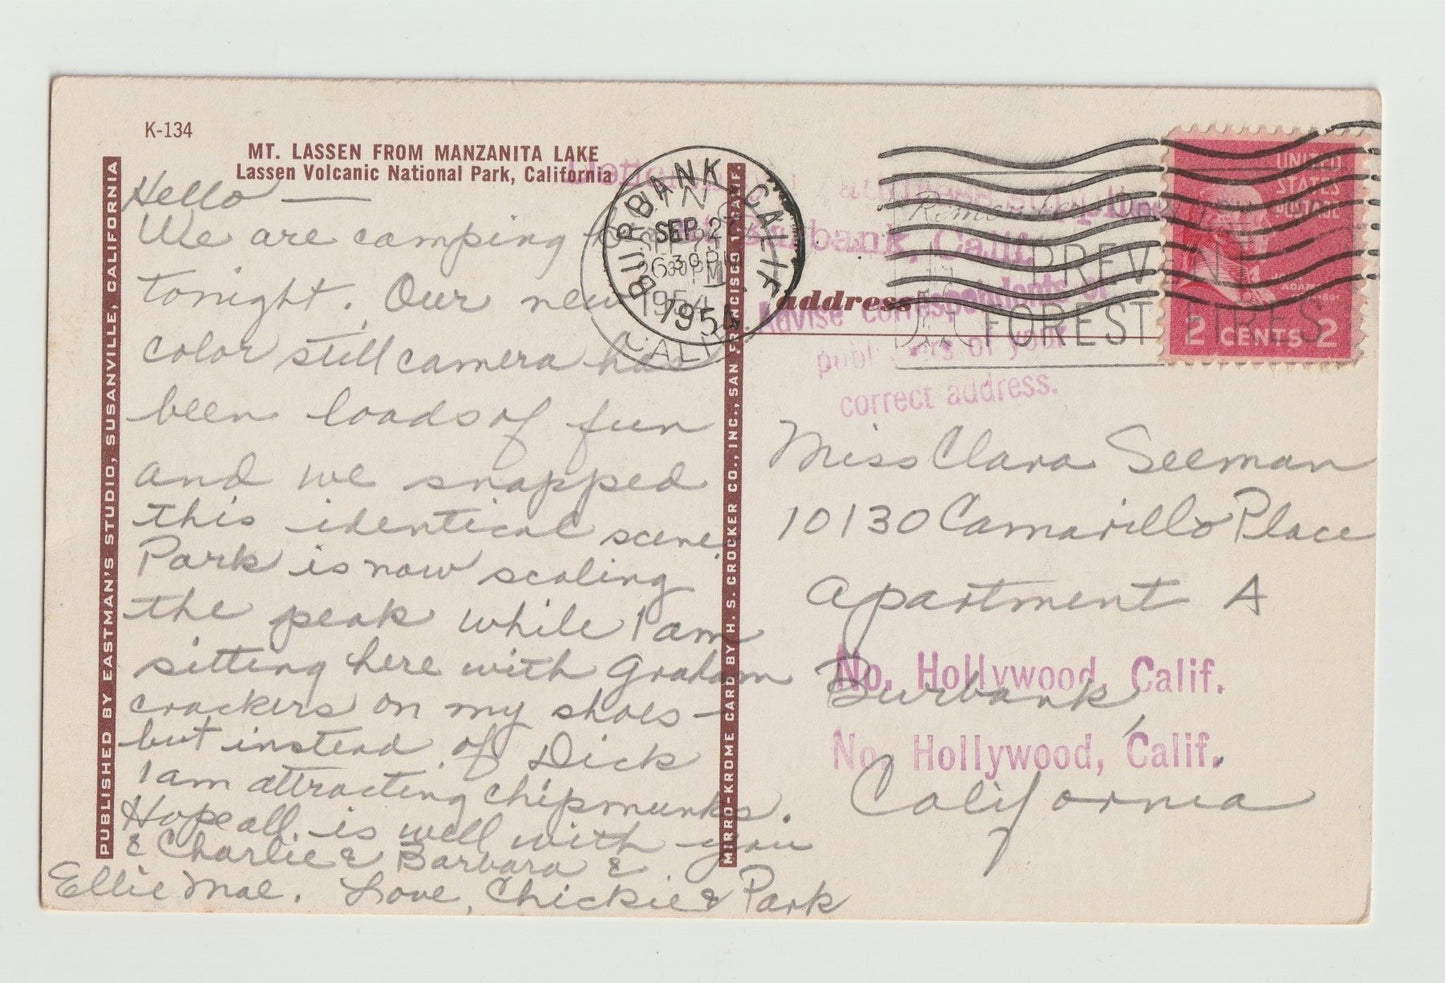 K-134
MT. LASSEN FROM MANZANITA LAKE
Lassen Volcanic National Park, California
PUBLISHED BY EASTMAN'S STUDIO, SUSANVILLE, CALIFORNIA
Hello —
We are camping
tonight. Our new
color still camera has
been loads of fun
and we snapped
this identical scene.
Park is now scaling
the peak while I am
sitting here with Graham
crackers on my shoes —
but instead of Dick
I am attracting chipmunks.
Hope all is well with you
& Charlie & Barbara &
Ellie Mae. Love, Chickie & Park
MIRRO-KROME CARD BY H. S. CROCKER CO., INC., SAN FRANCISCO 1, CALIF.
BURBANK, CALIF.
SEP 27
630 PM
1954
CALIF
Remember
PREVENT
FOREST FIRES
at Burbank, Calif.
Advise correspondents or
publishers of your
correct address.
address
UNITED
STATES
POSTAGE
2 CENTS 2
Miss Clara Seeman
10130 Camarillo Place
Apartment A
No. Hollywood, Calif.
Burbank,
No. Hollywood, Calif.
California